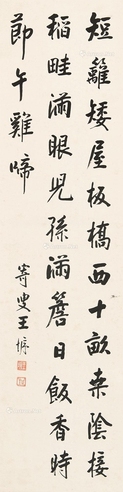 短籬矮屋板橋西十畝桑陰接
稻畦滿眼兒孫滿簷日飯香時
節午雞啼
苓叟王